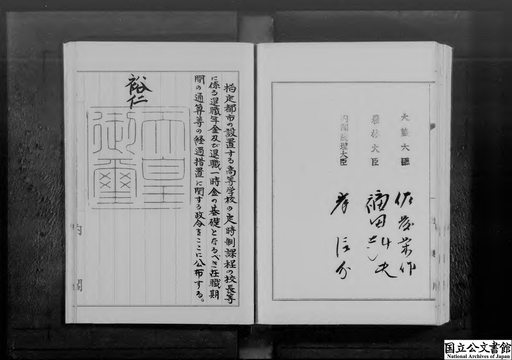 大蔵大臣
農林大臣
内閣総理大臣
佐藤栄作
福田赳夫
岸信介
指定都市の設置する高等学校の定時制課程の校長等
に係る退職年金及び退職一時金の基礎となるべき在職期
間の通算等の経過措置に関する政令をここに公布する。
裕仁
天皇
御璽
内閣
国立公文書館
National Archives of Japan